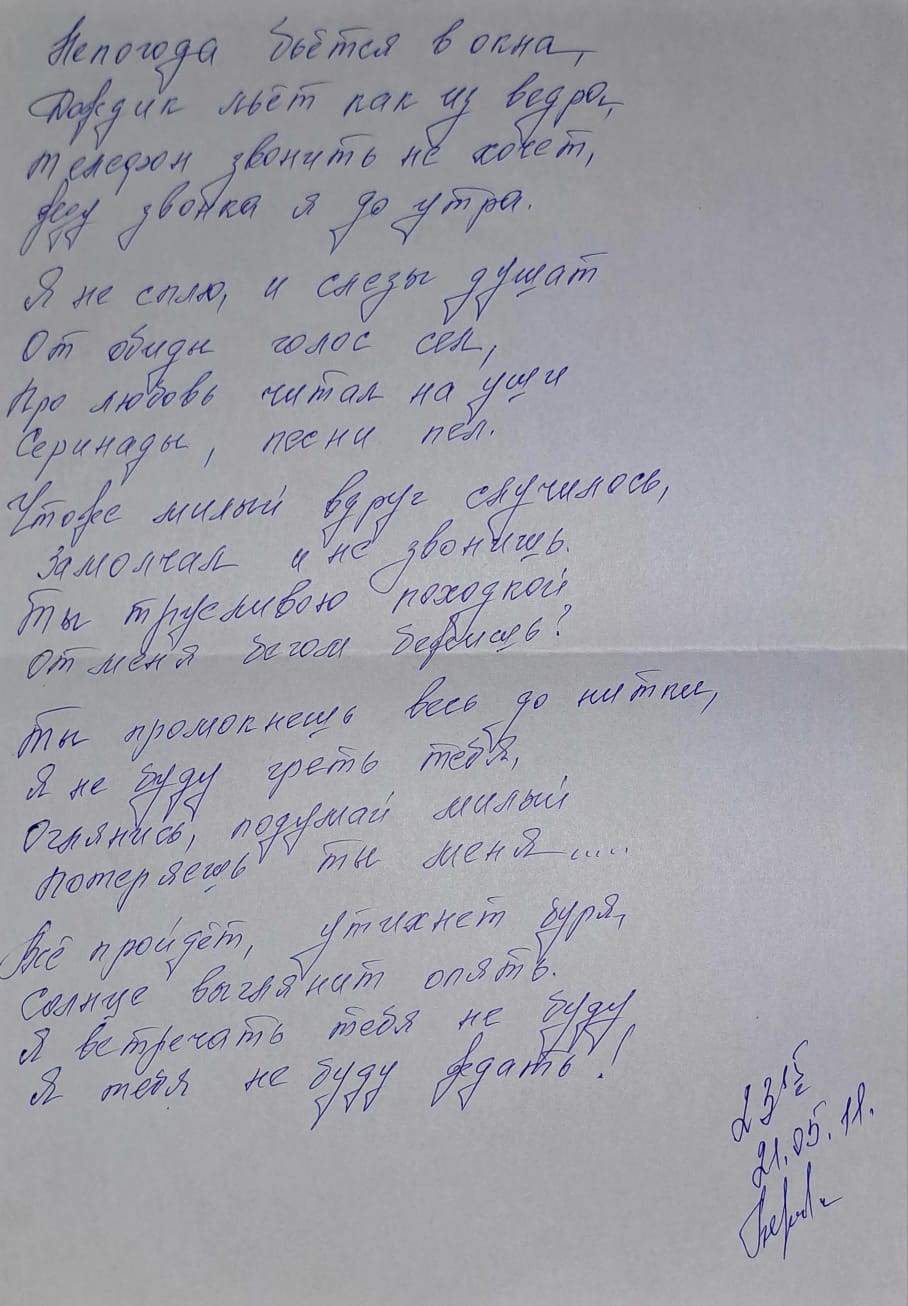 Непогода бьётся в окна,
Дождик льёт как из ведра,
Телефон звонить не хочет,
Жду звонка я до утра.
Я не сплю, и слезы душат
От обиды голос сел,
Про любовь читал на уши
Серинады, песни пел.
Чтоже милый вдруг случилось,
Замолчал и не звонишь.
Ты трусливою походкой
От меня бегом бежишь?
Ты промокнешь весь до нитки,
Я не буду греть тебя,
Оглянись, подумай милый
Потеряешь ты меня.....
Всё пройдёт, утихнет буря,
Солнце выглянит опять.
Я встречать тебя не буду
Я тебя не буду ждать!
23 15
21.05.11.